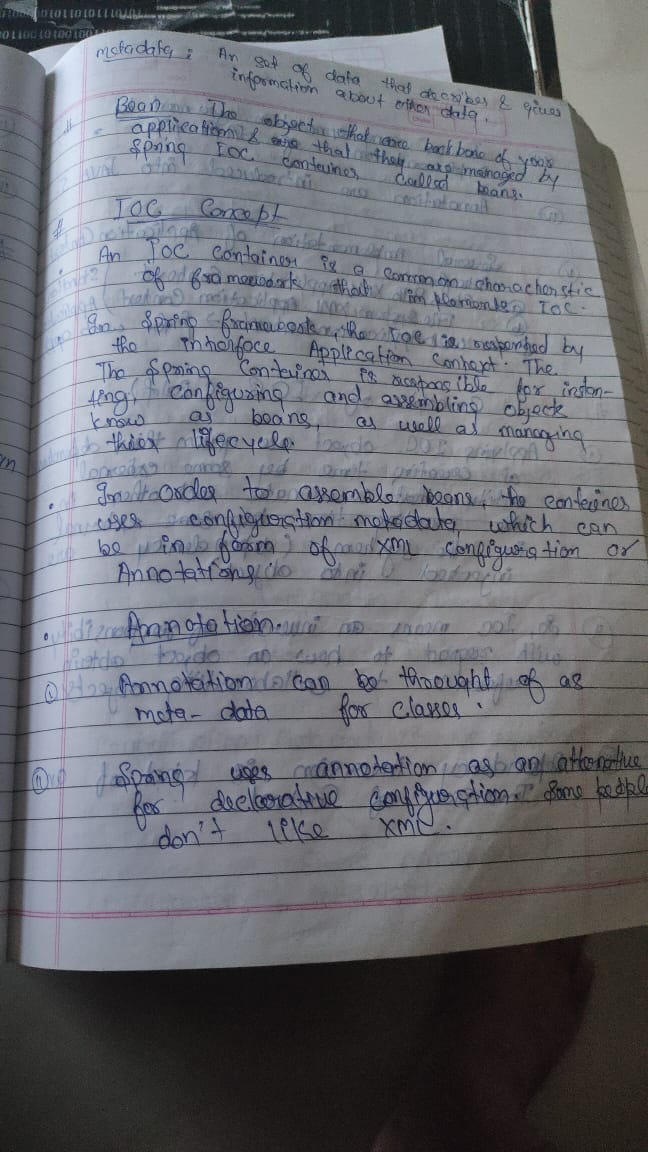 metadata : An set of data that describes & gives
information about other data.
Bean The object that are backbone of your
application & are that they are managed by
Spring IOC container called beans.
IOC Concept
An IOC container is a common characterstic
of framework that implements IOC.
In Spring framework, the IOC is responted by
the interface Application context. The
The Spring Container is responsible for instan-
ting, configuring and assembling objects
know as beans, as well as managing
thier lifecycle.
In order to assemble beans, the container
uses configuration metadata, which can
be in form of XML configuration or
Annotations
Annotation.
(i) Annotation can be throught of as
meta-data for classes.
(ii) Spring uges annotation as an alternative
for declarative configuration. Some people
don't like XML.